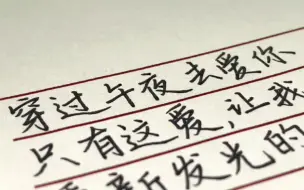 穿过午夜去爱你
只有这爱,让我
重新发光的